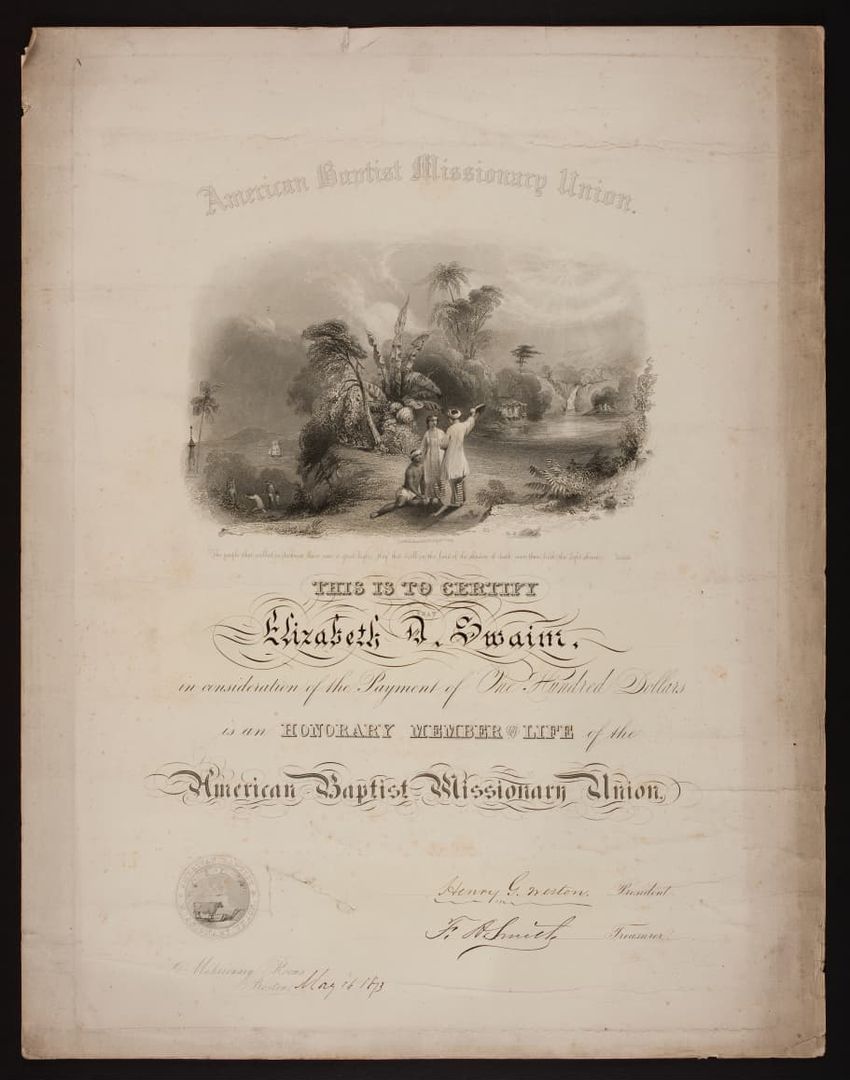 American Baptist Missionary Union.
The people that walked in darkness have seen a great light: they that dwell in the land of the shadow of death, upon them hath the light shined. Isaiah
THIS IS TO CERTIFY
THAT
Elizabeth D. Swaim,
in consideration of the Payment of One Hundred Dollars
is an HONORARY MEMBER for LIFE of the
American Baptist Missionary Union.
Henry G. Weston. President
F. A. Smith Treasurer
Missionary Rooms
Boston, May 16 1873